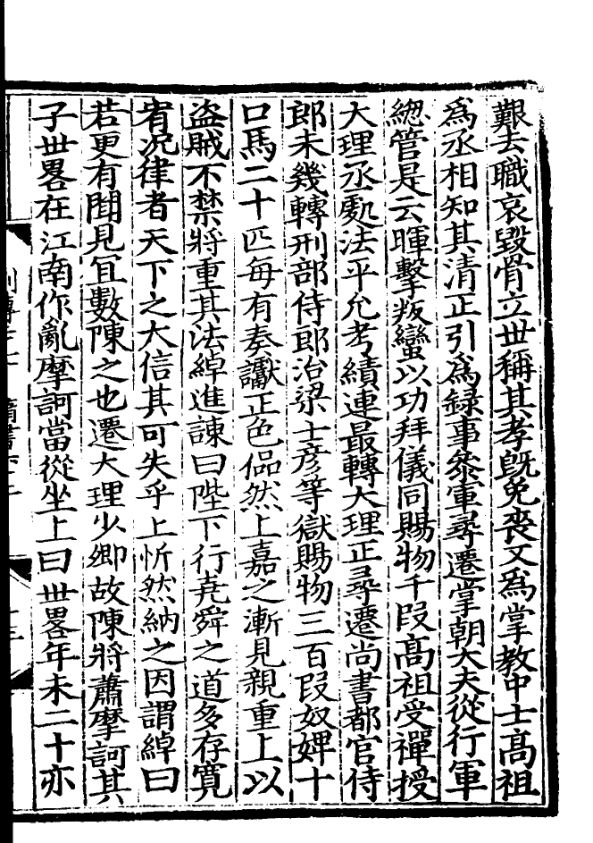 艱去職哀毀骨立世稱其孝旣免喪又爲掌教中士高祖
爲丞相知其清正引爲録事叅軍尋遷掌朝大夫從行軍
總管是云暉擊叛蠻以功拜儀同賜物千段高祖受禪授
大理丞處法平允考績連最轉大理正尋遷尚書都官侍
郎未幾轉刑部侍郎治梁士彦等獄賜物三百段奴婢十
口馬二十匹每有奏讞正色偘然上嘉之漸見親重上以
盜賊不禁將重其法綽進諫曰陛下行堯舜之道多存寛
宥況律者天下之大信其可失乎上忻然納之因謂綽曰
若更有聞見宜數陳之也遷大理少卿故陳將蕭摩訶其
子世畧在江南作亂摩訶當從坐上曰世畧年未二十亦